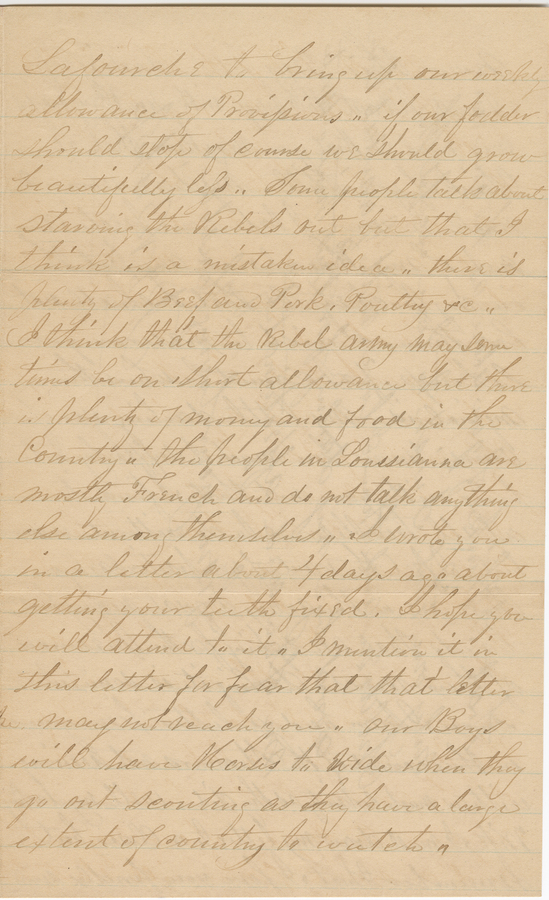 Lafourche to bring up our weekly
allowance of Provisions " if our fodder
should stop of course we should grow
beautifully less " Some people talk about
starving the Rebels out but that I
think is a mistaken idea " there is
plenty of Beef and Pork, Poultry &c "
I think that the Rebel army may some
times be on short allowance but there
is plenty of money and food in the
Country " the people in Loussianna are
mostly French and do not talk anything
else among themselves " I wrote you
in a letter about 4 days ago about
getting your teeth fixed. I hope you
will attend to it " I mention it in
this letter for fear that that letter
may not reach you " our Boys
will have Horses to Ride when they
go out scouting as they have a large
extent of country to watch "